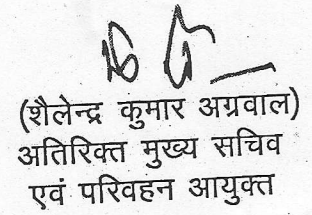 (शैलेन्द्र कुमार अग्रवाल)
अतिरिक्त मुख्य सचिव
एवं परिवहन आयुक्त